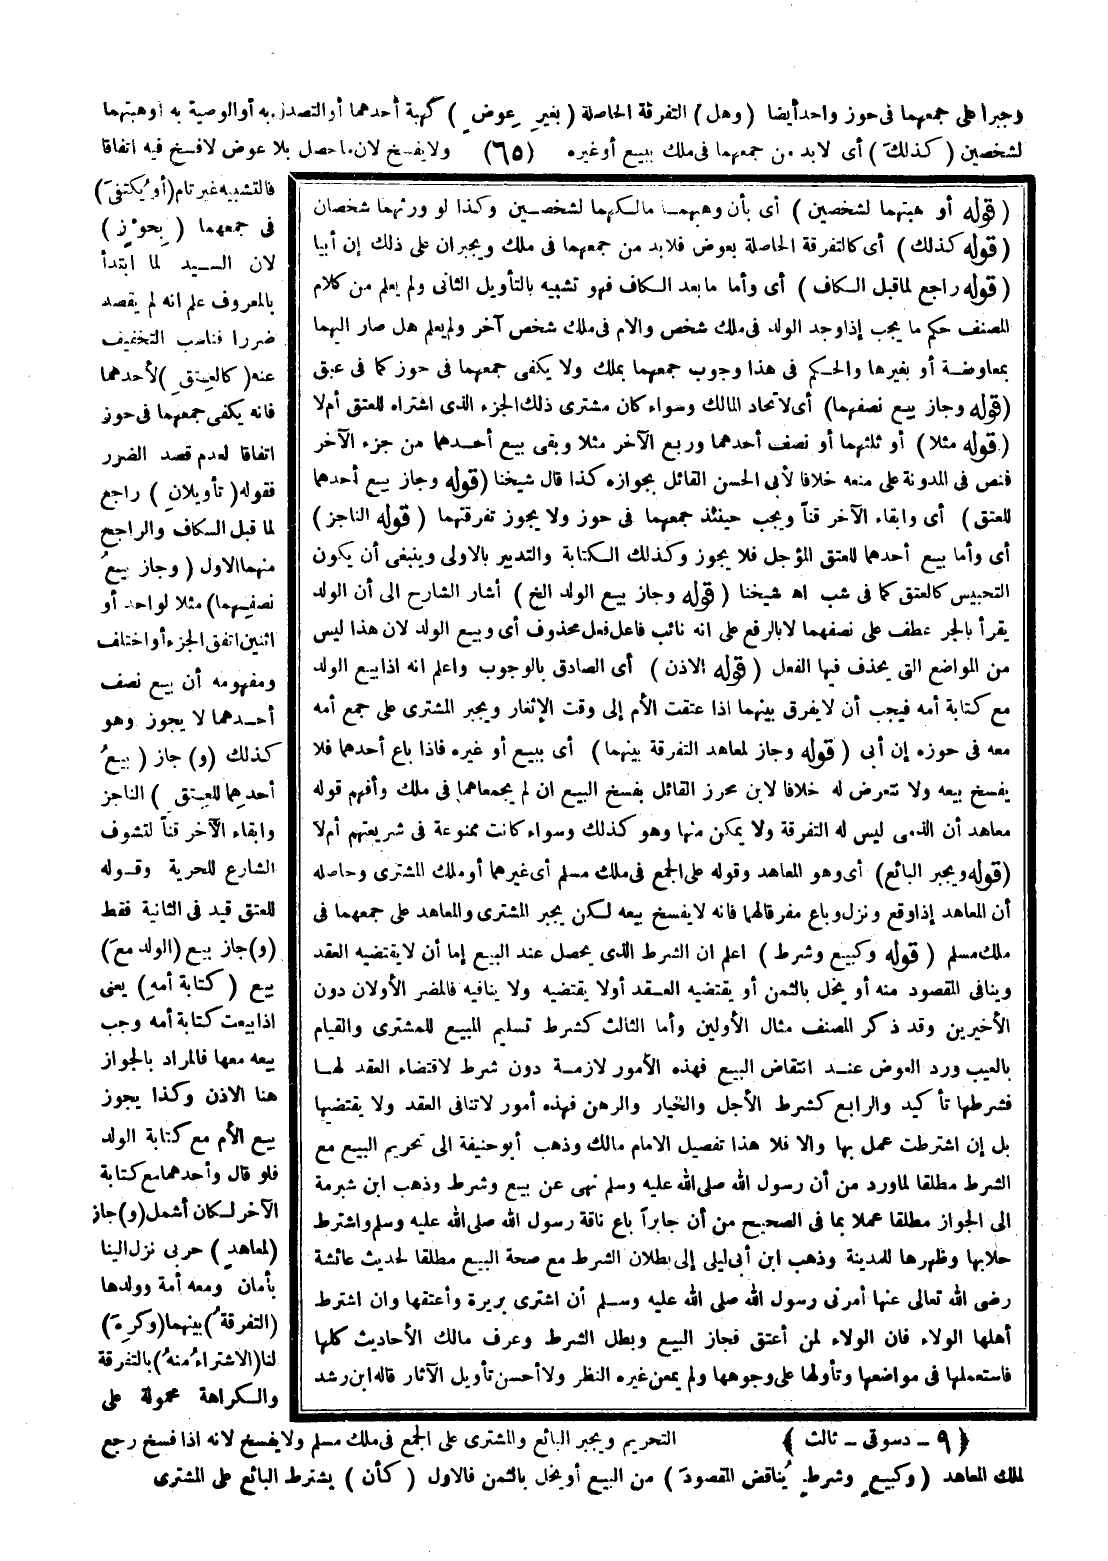 وجبرا على جمعهما فى حوز واحد أيضا (وهل) التفرقة الحاصلة (بغيرِ عوضٍ) كهبة أحدهما أو التصدق به أو الوصية به أو هبتهما
لشخصين (كذلكَ) أى لابد من جمعهما فى ملك ببيع أو غيره (٦٥) ولا يفسخ لان ماحصل بلا عوض لا فسخ فيه اتفاقا
فالتشبيه غير تام (أو يُكتفىَ)
فى جمعهما (بِحوْزٍ)
لان السيد لما ابتدأ
بالمعروف علم انه لم يقصد
ضررا فناسب التخفيف
عنه (كالعِتقِ) لأحدهما
فانه يكفى جمعهما فى حوز
اتفاقا لعدم قصد الضرر
فقوله (تأويلانِ) راجع
لما قبل الكاف والراجح
منهما الاول (وجاز بيعُ
نصفِهما) مثلا لواحد أو
اثنين اتفق الجزء أو اختلف
ومفهومه أن بيع نصف
أحدهما لا يجوز وهو
كذلك (و) جاز (بيعُ
أحدِهما للعِتقِ) الناجز
وابقاء الآخر قناً لتشوف
الشارع للحرية وقوله
للعتق قيد فى الثانية فقط
(و) جاز بيع (الولد معَ)
بيع (كتابة أمهِ) يعنى
اذا بيعت كتابة أمه وجب
بيعه معها فالمراد بالجواز
هنا الاذن وكذا يجوز
بيع الأم مع كتابة الولد
فلو قال وأحدهما مع كتابة
الآخر لكان أشمل (و) جاز
(لمعاهدٍ) حربى نزل الينا
بأمان ومعه أمة وولدها
(التفرقةُ) بينهما (وكرِهَ)
لنا (الاشتراءُ منهُ) بالتفرقة
والكراهة محمولة على
(قوله أو هبتهما لشخصين) أى بأن وهبهما مالكهما لشخصين وكذا لو ورثهما شخصان
(قوله كذلك) أى كالتفرقة الحاصلة بعوض فلابد من جمعهما فى ملك ويجبران على ذلك إن أبيا
(قوله راجع لماقبل الكاف) أى وأما مابعد الكاف فهو تشبيه بالتأويل الثانى ولم يعلم من كلام
المصنف حكم ما يجب إذا وجد الولد فى ملك شخص والام فى ملك شخص آخر ولم يعلم هل صار اليهما
بمعاوضة أو بغيرها والحكم فى هذا وجوب جمعهما بملك ولا يكفى جمعهما فى حوز كما فى عبق
(قوله وجاز بيع نصفهما) أى لاتحاد المالك وسواء كان مشترى ذلك الجزء الذى اشتراه للعتق أم لا
(قوله مثلا) أو ثلثهما أو نصف أحدهما وربع الآخر مثلا وبقى بيع أحدهما من جزء الآخر
فنص فى المدونة على منعه خلافا لأبى الحسن القائل بجوازه كذا قال شيخنا (قوله وجاز بيع أحدهما
للعتق) أى وابقاء الآخر قناً ويجب حينئذ جمعهما فى حوز ولا يجوز تفرقتهما (قوله الناجز)
أى وأما بيع أحدهما للعتق المؤجل فلا يجوز وكذلك الكتابة والتدبير بالاولى وينبغى أن يكون
التحبيس كالعتق كما فى شب اه شيخنا (قوله وجاز بيع الولد الخ) أشار الشارح الى أن الولد
يقرأ بالجر عطف على نصفهما لا بالرفع على انه نائب فاعل فعل محذوف أى وبيع الولد لان هذا ليس
من المواضع التى يحذف فيها الفعل (قوله الاذن) أى الصادق بالوجوب واعلم انه اذا بيع الولد
مع كتابة أمه فيجب أن لا يفرق بينهما اذا عتقت الأم إلى وقت الإثغار ويجبر المشترى على جمع أمه
معه فى حوزه إن أبى (قوله وجاز لمعاهد التفرقة بينهما) أى ببيع أو غيره فاذا باع أحدهما فلا
يفسخ بيعه ولا نتعرض له خلافا لابن محرز القائل بفسخ البيع ان لم يجمعاهما فى ملك وأفهم قوله
معاهد أن الذمى ليس له التفرقة ولا يمكن منها وهو كذلك وسواء كانت ممنوعة فى شريعتهم أم لا
(قوله ويجبر البائع) أى وهو المعاهد وقوله على الجمع فى ملك مسلم أى غيرهما أو ملك المشترى وحاصله
أن المعاهد إذا وقع ونزل وباع مفرقا لهما فانه لا يفسخ بيعه لكن يجبر المشترى والمعاهد على جمعهما فى
ملك مسلم (قوله وكبيع وشرط) اعلم ان الشرط الذى يحصل عند البيع إما أن لا يقتضيه العقد
وينافى المقصود منه أو يخل بالثمن أو يقتضيه العقد أولا يقتضيه ولا ينافيه فالمضر الأولان دون
الأخيرين وقد ذكر المصنف مثال الأولين وأما الثالث كشرط تسليم المبيع للمشترى والقيام
بالعيب ورد العوض عند انتقاض البيع فهذه الأمور لازمة دون شرط لاقتضاء العقد لها
فشرطها تأكيد والرابع كشرط الأجل والخيار والرهن فهذه أمور لاتنافى العقد ولا يقتضيها
بل إن اشترطت عمل بها والا فلا هذا تفصيل الامام مالك وذهب أبو حنيفة الى تحريم البيع مع
الشرط مطلقا لماورد من أن رسول الله صلى الله عليه وسلم نهى عن بيع وشرط وذهب ابن شبرمة
الى الجواز مطلقا عملا بما فى الصحيح من أن جابراً باع ناقة رسول الله صلى الله عليه وسلم واشترط
حلابها وظهرها للمدينة وذهب ابن أبى ليلى إلى بطلان الشرط مع صحة البيع مطلقا لحديث عائشة
رضى الله تعالى عنها أمرنى رسول الله صلى الله عليه وسلم أن اشترى بريرة وأعتقها وان اشترط
أهلها الولاء فان الولاء لمن أعتق فجاز البيع وبطل الشرط وعرف مالك الأحاديث كلها
فاستعملها فى مواضعها وتأولها على وجوهها ولم يمعن غيره النظر ولا أحسن تأويل الآثار قاله ابن رشد
(٩ ــ دسوقى ــ ثالث) التحريم ويجبر البائع والمشترى على الجمع فى ملك مسلم ولا يفسخ لانه اذا فسخ رجع
لملك المعاهد (وكبيعٍ وشرطٍ يُناقض المقصودَ) من البيع أو يخل بالثمن فالاول (كأن) يشترط البائع على المشترى